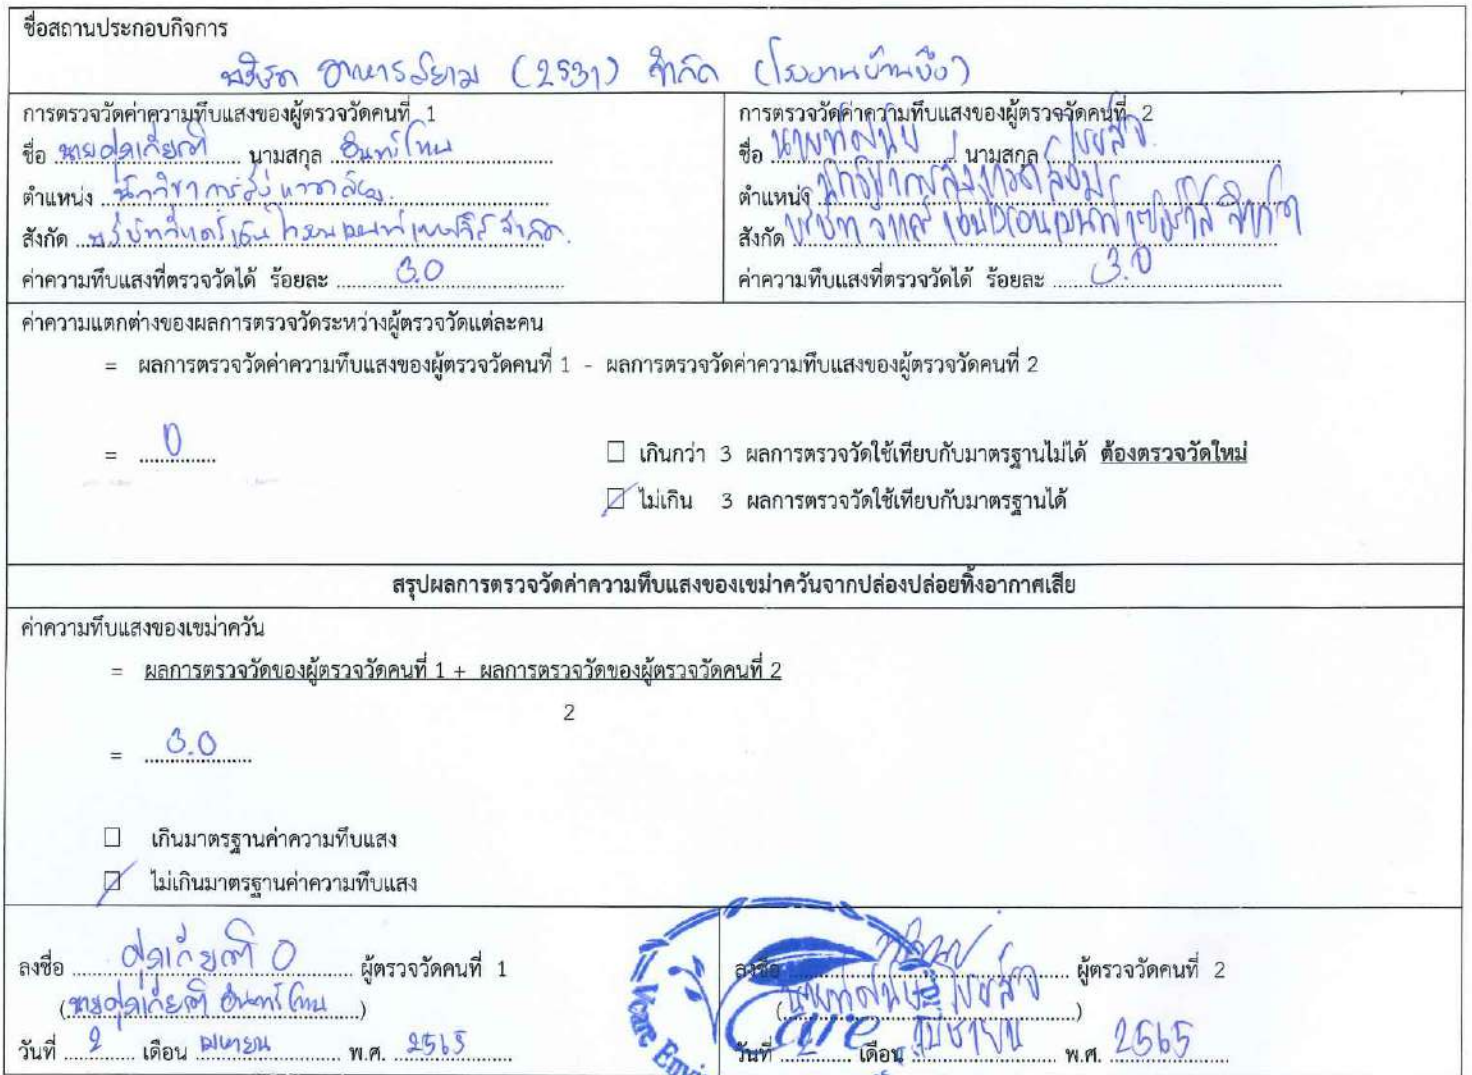 ชื่อสถานประกอบกิจการ
บริษัท อาหารสยาม (2531) จำกัด (โรงงานบ้านบึง)
การตรวจวัดค่าความทึบแสงของผู้ตรวจวัดคนที่ 1
ชื่อ นาย นามสกุล อินทร์โทน
ตำแหน่ง นักวิชาการสิ่งแวดล้อม
สังกัด บริษัท วีแคร์ เอ็นไวรอนเมนท์ จำกัด
ค่าความทึบแสงที่ตรวจวัดได้ ร้อยละ 3.0
การตรวจวัดค่าความทึบแสงของผู้ตรวจวัดคนที่ 2
ชื่อ นาย นามสกุล
ตำแหน่ง นักวิชาการสิ่งแวดล้อม
สังกัด บริษัท วีแคร์ เอ็นไวรอนเมนท์ จำกัด
ค่าความทึบแสงที่ตรวจวัดได้ ร้อยละ 3.0
ค่าความแตกต่างของผลการตรวจวัดระหว่างผู้ตรวจวัดแต่ละคน
= ผลการตรวจวัดค่าความทึบแสงของผู้ตรวจวัดคนที่ 1 - ผลการตรวจวัดค่าความทึบแสงของผู้ตรวจวัดคนที่ 2
= 0
เกินกว่า 3 ผลการตรวจวัดใช้เทียบกับมาตรฐานไม่ได้ ต้องตรวจวัดใหม่
ไม่เกิน 3 ผลการตรวจวัดใช้เทียบกับมาตรฐานได้
สรุปผลการตรวจวัดค่าความทึบแสงของเขม่าควันจากปล่องปล่อยทิ้งอากาศเสีย
ค่าความทึบแสงของเขม่าควัน
= ผลการตรวจวัดของผู้ตรวจวัดคนที่ 1 + ผลการตรวจวัดของผู้ตรวจวัดคนที่ 2
2
= 3.0
เกินมาตรฐานค่าความทึบแสง
ไม่เกินมาตรฐานค่าความทึบแสง
ลงชื่อ ผู้ตรวจวัดคนที่ 1
(นาย อินทร์โทน)
วันที่ 2 เดือน เมษายน พ.ศ. 2565
ลงชื่อ ผู้ตรวจวัดคนที่ 2
วันที่ 2 เดือน เมษายน พ.ศ. 2565
Vcare Envi
Care